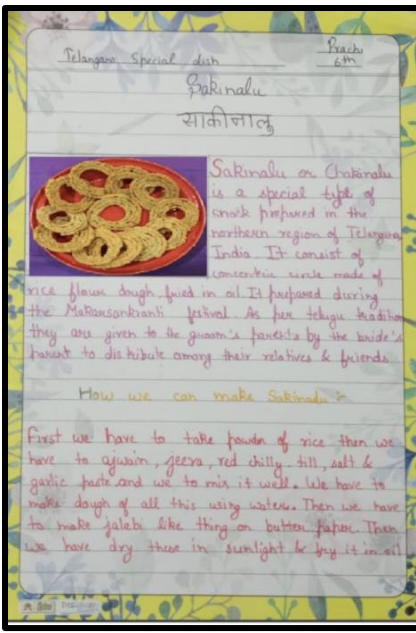 Telangana Special dish
Prachi
6th
Sakinalu
साकीनालु
Sakinalu or Chakinalu
is a special type of
snack prepared in the
northern region of Telangana,
India. It consist of
concentric circle made of
rice flour dough, fried in oil. It prepared during
the Makarsankranti festival. As per telugu tradition
they are given to the groom's parents by the bride's
parent to distribute among their relatives & friends.
How we can make Sakinalu :-
First we have to take powder of rice then we
have to ajwain, jeera, red chilly, till, salt &
garlic paste and we to mix it well. We have to
make dough of all this using water. Then we have
to make jalebi like thing on butter paper. Then
we have dry these in sunlight & fry it in oil